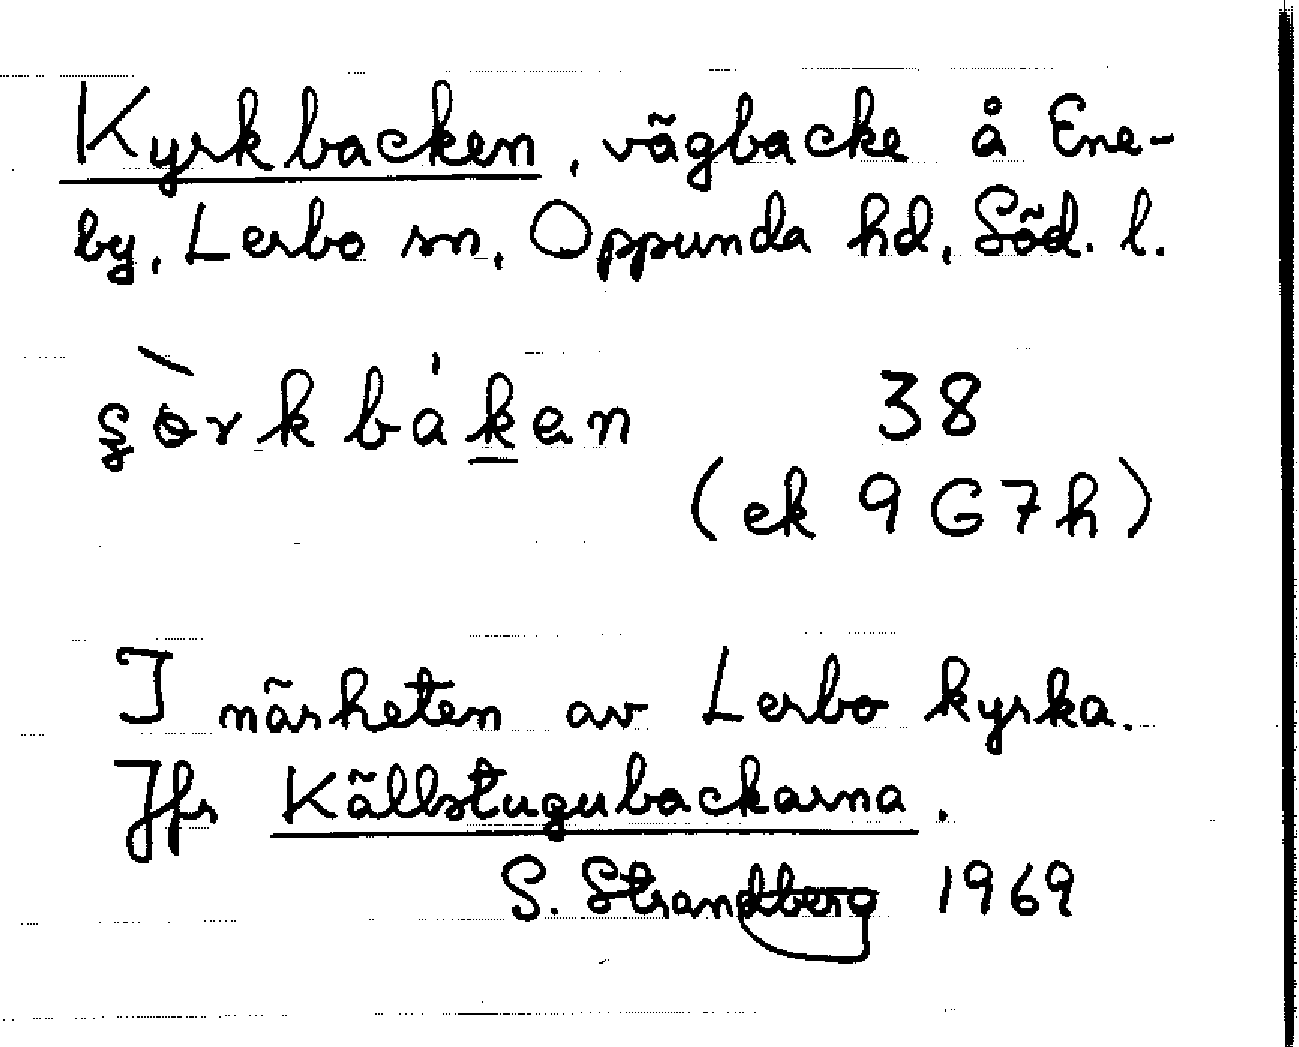 Kyrkbacken, vägbacke å Ene-
by, Lerbo sn, Oppunda hd, Söd. l.
38
(ek 9G7h)
I närheten av Lerbo kyrka.
Jfr Källstugubackarna.
S. Strandberg 1969